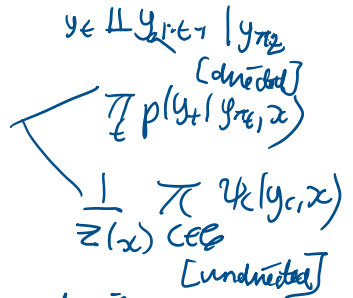 y_t ⫫ y_{1:t-1} | y_{π_t}
[directed]
∏_t p(y_t | y_{π_t}, x)
1/Z(x) ∏_{c∈𝒞} ψ_c(y_c, x)
[undirected]